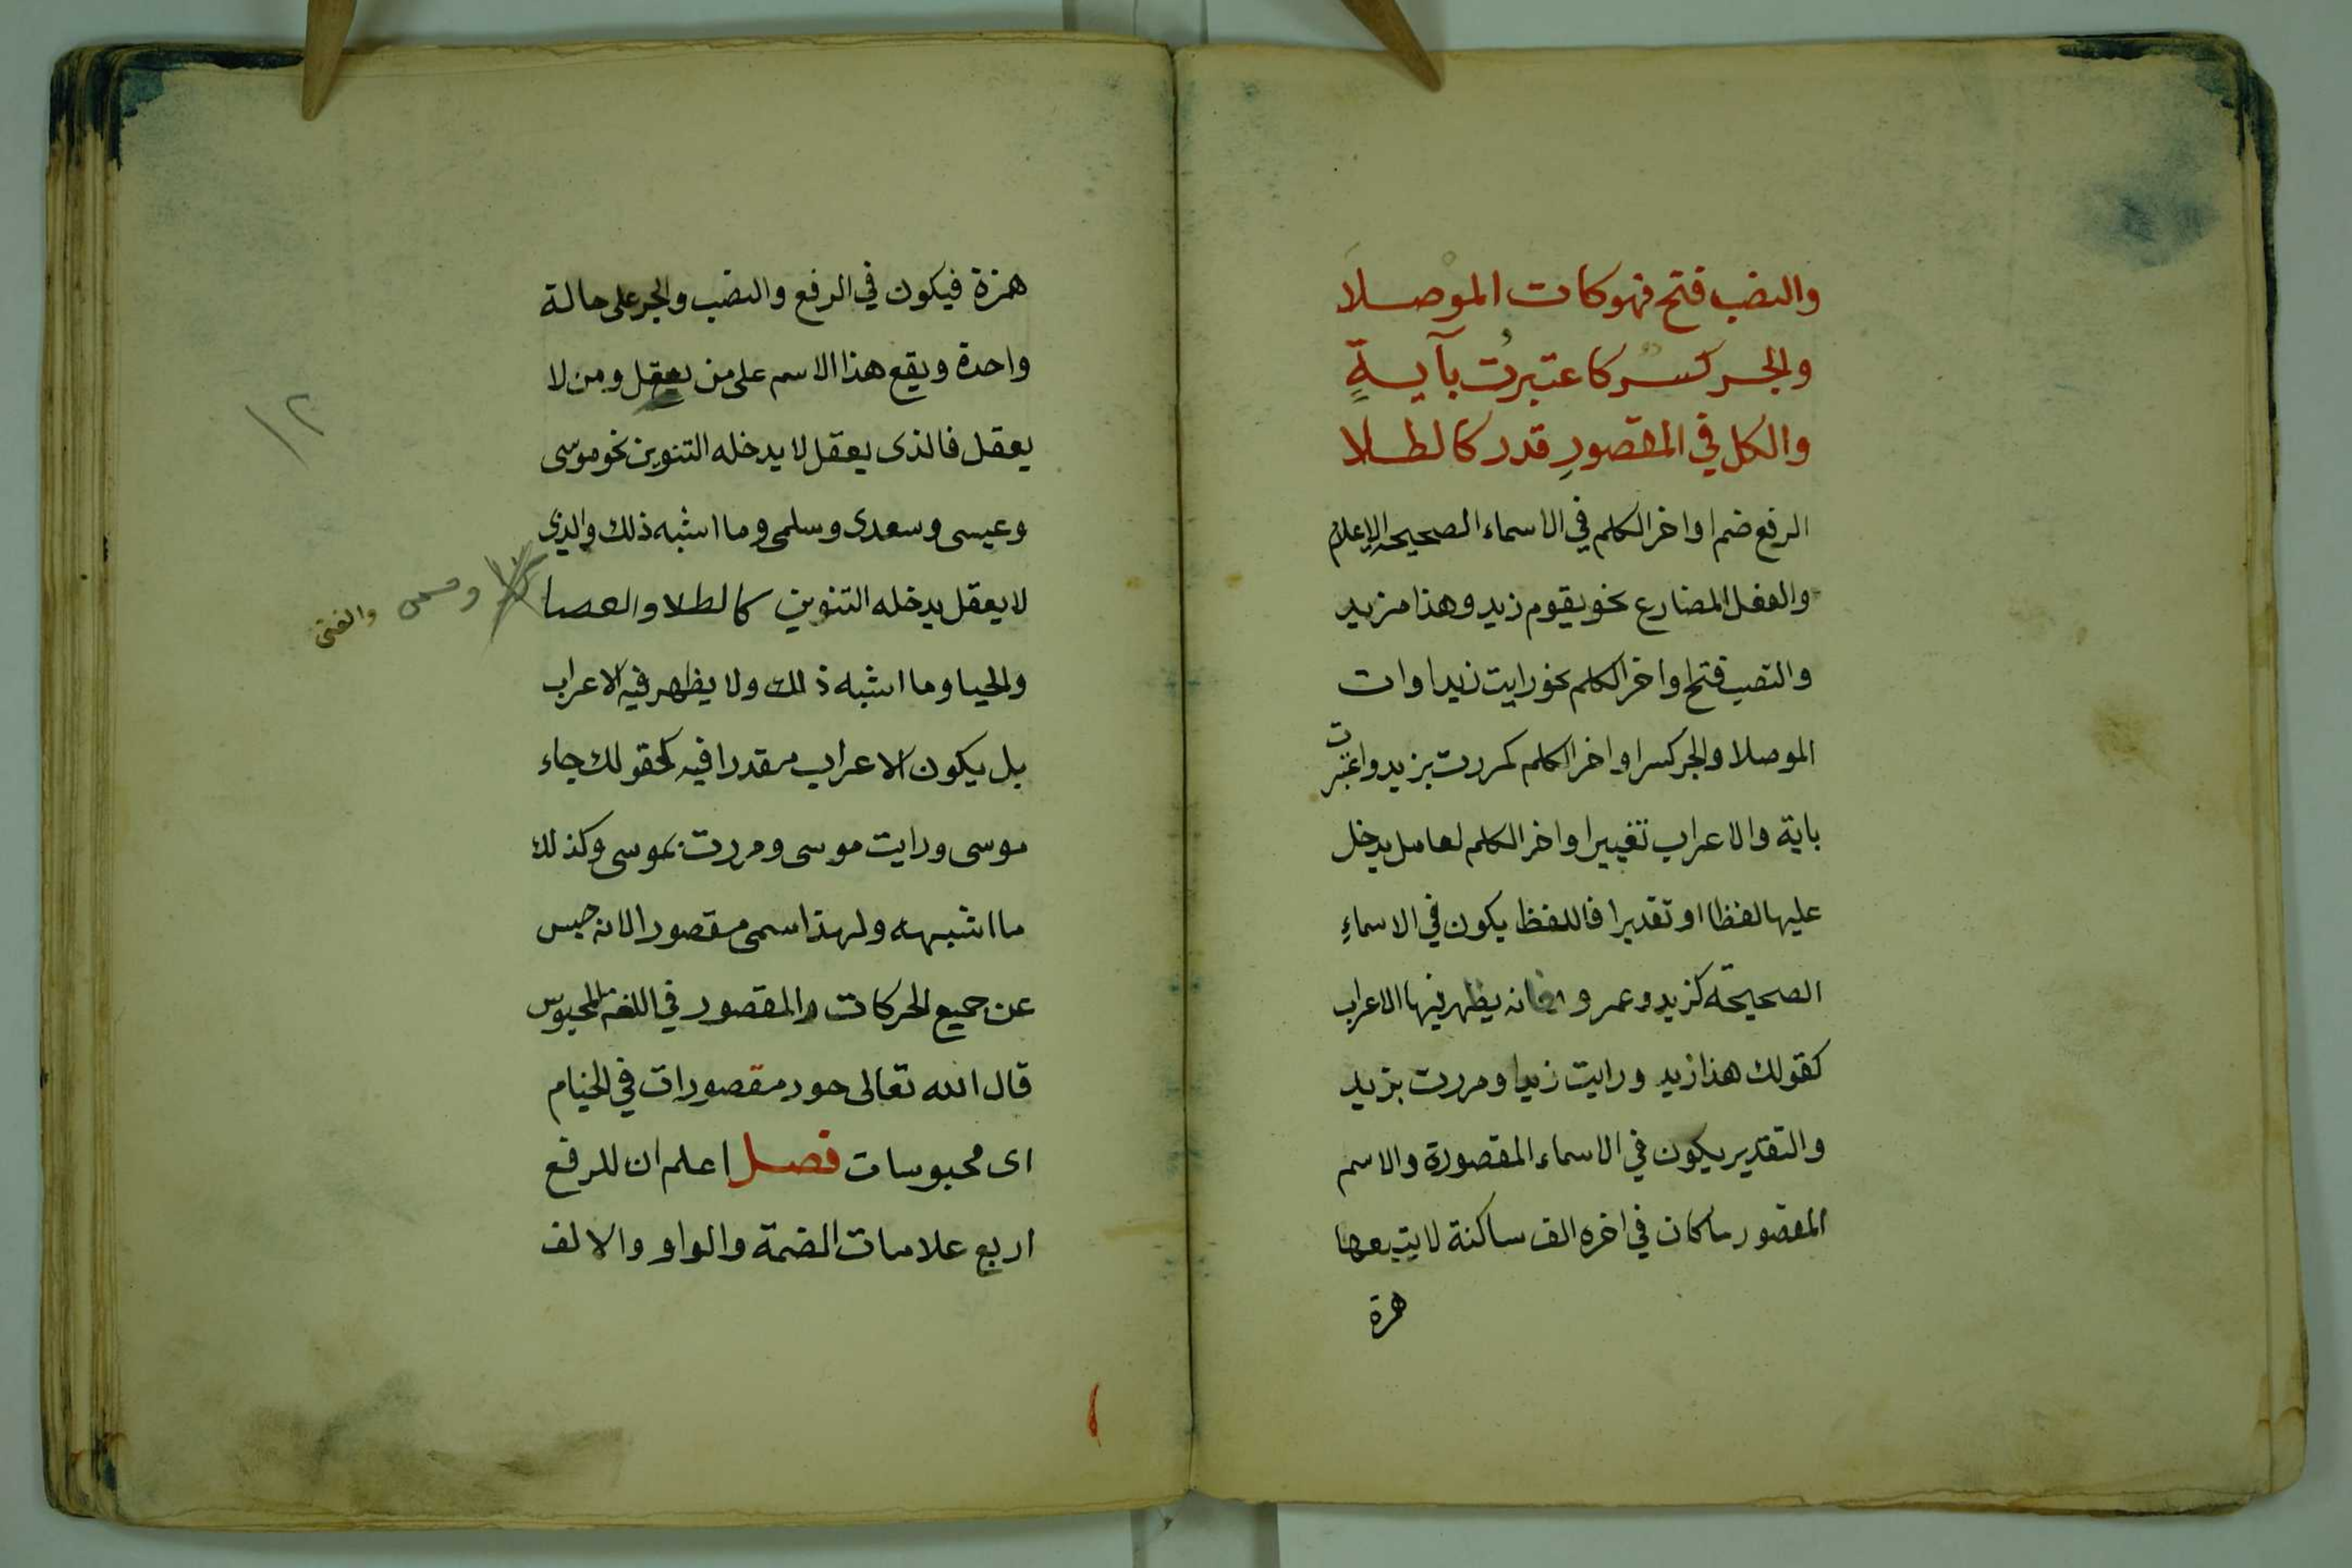 والنصب فتح فهو كات الموْصلَا
والجر كسر كاعتبرتُ بآيةٍ
والكل في المقصورِ قدر كالطلا
الرفع ضم اواخر الكلم في الاسماء الصحيحه الاعلام
والفعل المضارع نحو يقوم زيد وهذا مزيد
والنصب فتح اواخر الكلم نحو رايت زيدا وات
الموصلا والجر كسر اواخر الكلم كمررت بزيد واعتبرت
باية والاعراب تغيير اواخر الكلم لعامل يدخل
عليها لفظا او تقديرا فاللفظ يكون في الاسماءِ
الصحيحة كزيد وعمرو فانه يظهر فيها الاعراب
كقولك هذا زيد ورايت زيدا ومررت بزيد
والتقدير يكون في الاسماء المقصورة والاسم
المقصور ما كان في اخره الف ساكنة لا يتبعها
همزة
همزة فيكون في الرفع والنصب والجر على حالة
واحدة ويقع هذا الاسم على من يعقل ومن لا
يعقل فالذى يعقل لا يدخله التنوين نحو موسى
وعيسى وسعدى وسلمى وما اشبه ذلك والذى
لا يعقل يدخله التنوين كالطلا والعصا
والفتى
والحيا وما اشبه ذلك ولا يظهر فيه الاعراب
بل يكون الاعراب مقدرا فيه كقولك جاء
موسى ورايت موسى ومررت بموسى وكذلك
ما اشبهه ولهذا سمى مقصورا لانه حبس
عن جميع الحركات والمقصور في اللغة المحبوس
قال الله تعالى حور مقصورات في الخيام
اى محبوسات فصل اعلم ان للرفع
اربع علامات الضمة والواو والالف
١٢